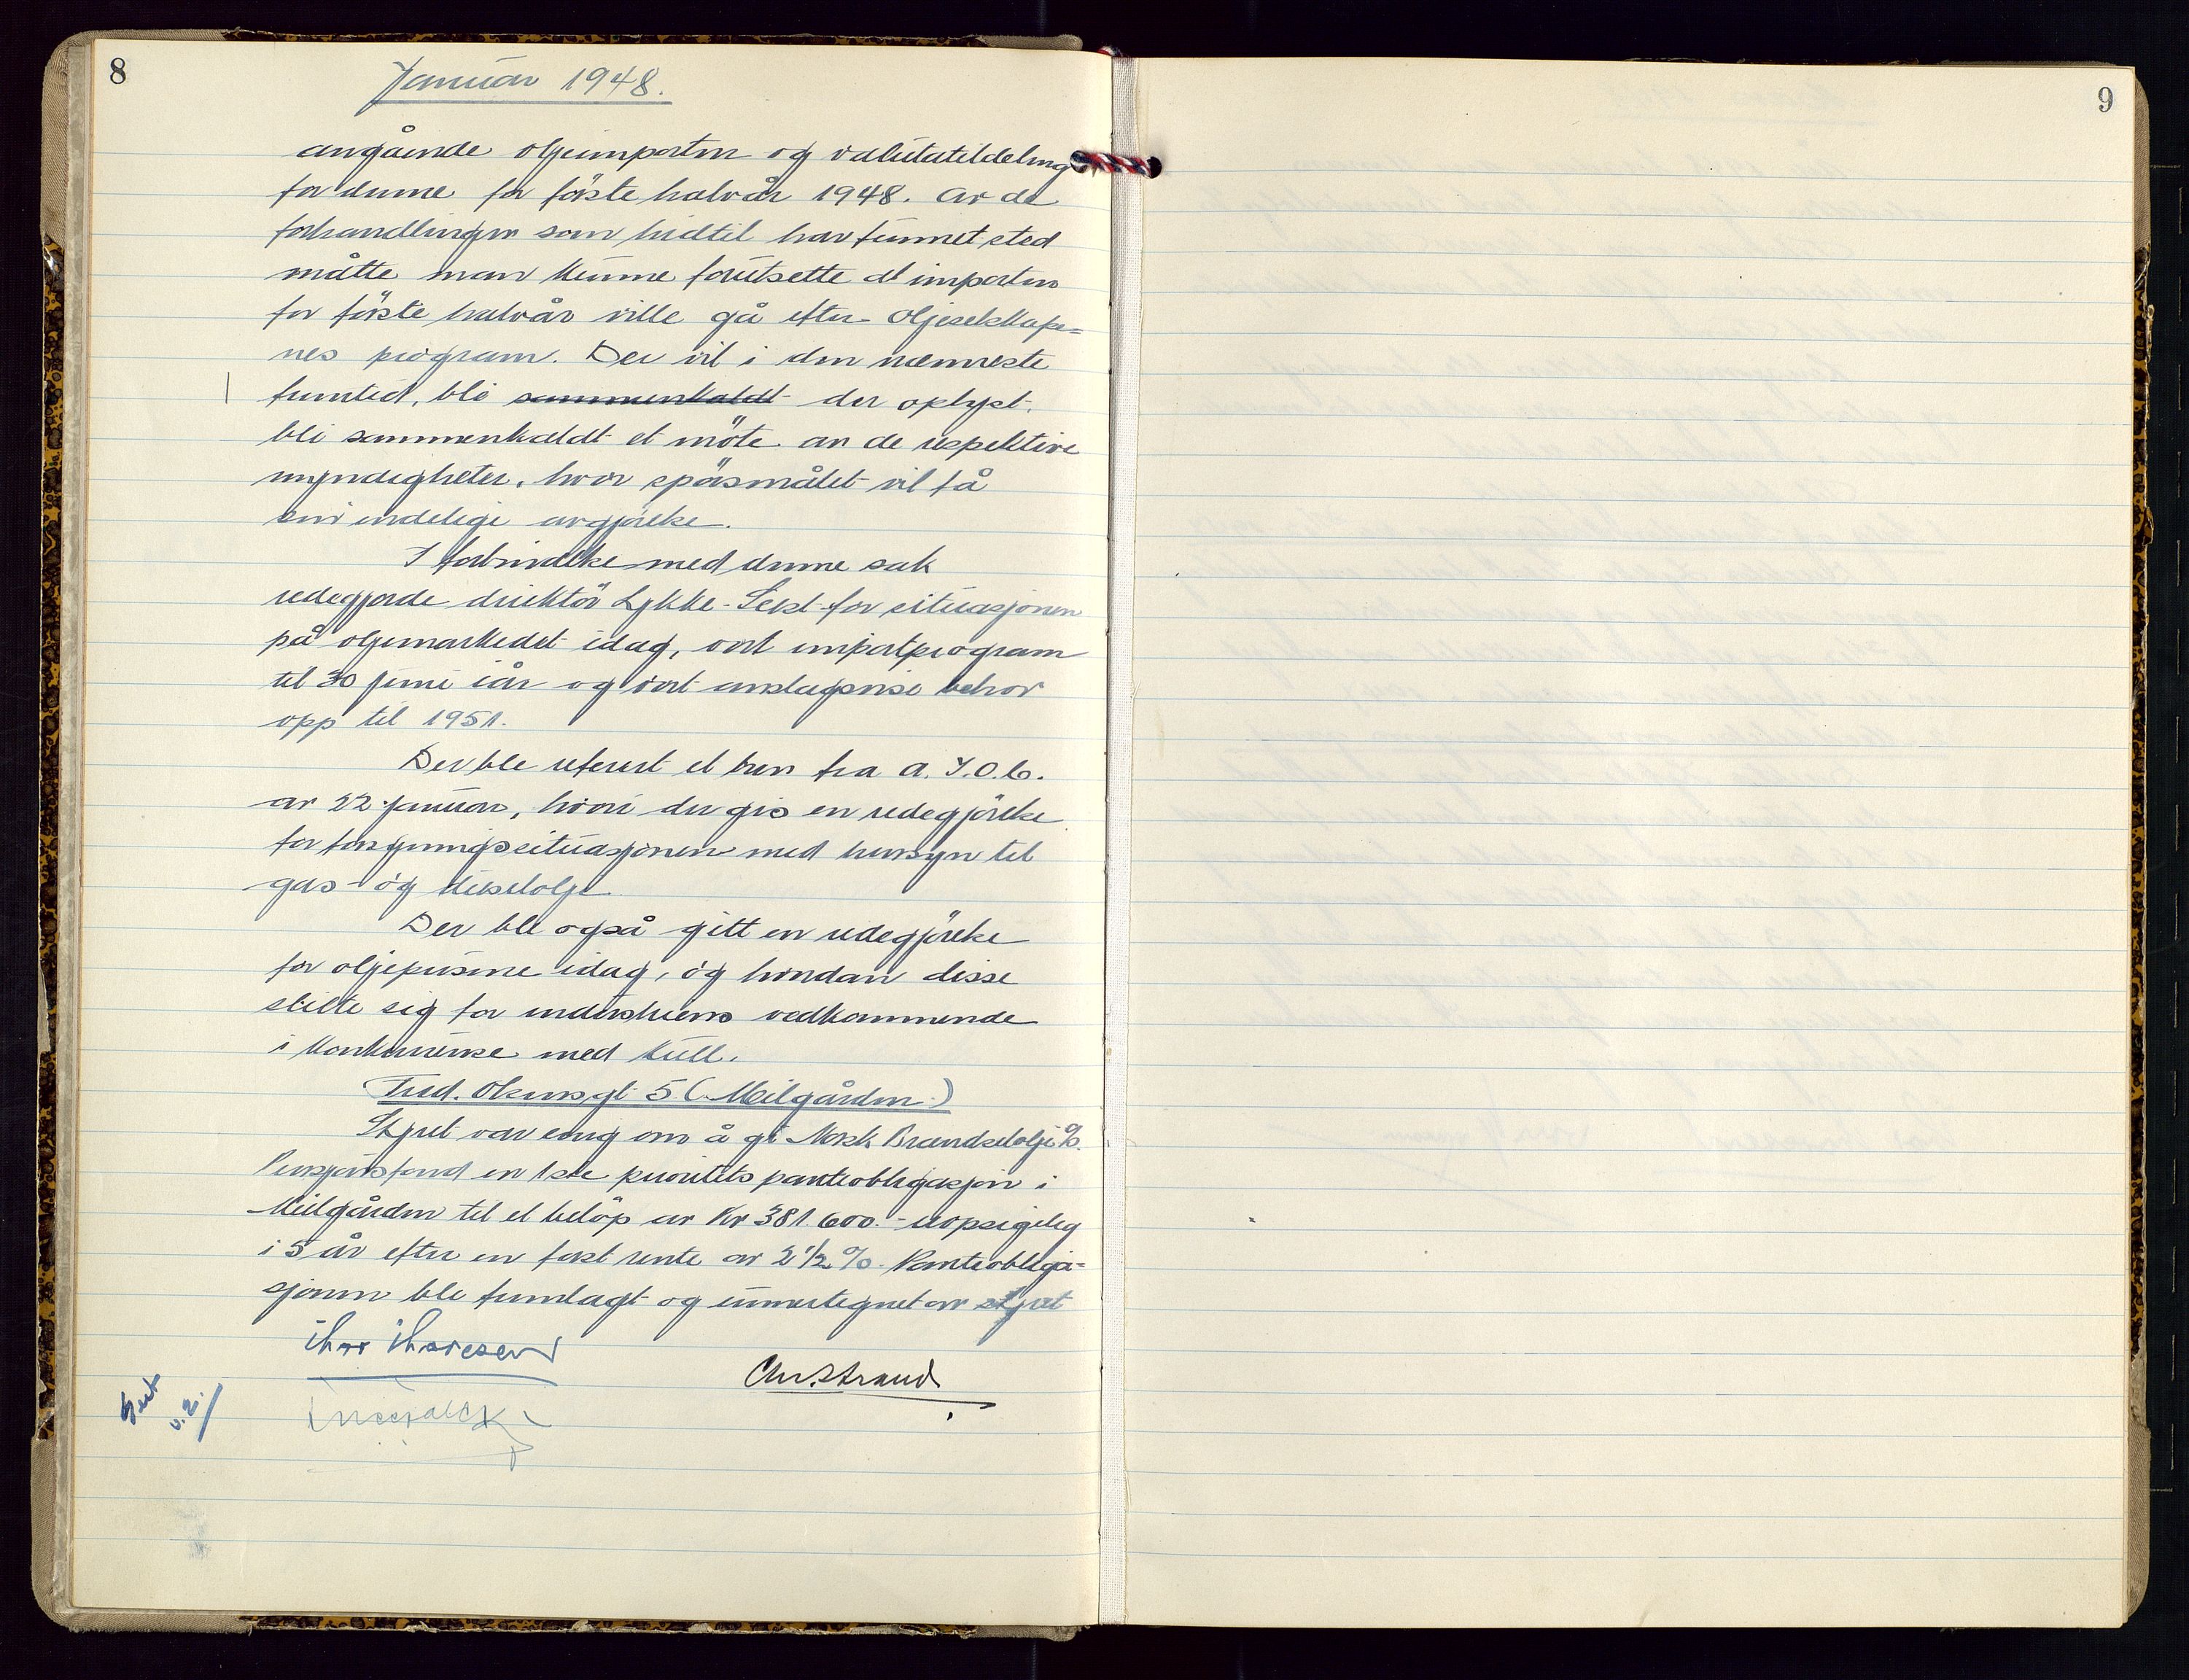 8
Januar 1948.
angående oljeimporten og valutatildeling
for denne for første halvår 1948. Av de
forhandlinger som hidtil har funnet sted
måtte man kunne forutsette at importen
for første halvår ville gå efter Oljeselskape=
nes program. Der vil i den nærmeste
fremtid, bli sammenkaldt der oplyst.
bli sammenkaldt et møte av de respektive
myndigheter, hvor spørsmålet vil få
sin endelige avgjørelse.
I forbindelse med denne sak
redegjorde direktør Lykke-Seest for situasjonen
på oljemarkedet idag, vort importprogram
til 30 juni iår og vort anslagsvise behov
opp til 1951.
Der ble referert et brev fra A.I.O.C.
av 22 januar, hvori der gis en redegjørelse
for forsyningssituasjonen med hensyn til
gas- og dieselolje.
Der ble også gitt en redegjørelse
for oljeprisene idag, og hvordan disse
stilte sig for industriens vedkommende
i konkurranse med kull.
Fred. Olsensgt 5 (Meilgården)
Styret var enig om å gi Norsk Brændselolje A/S.
Pensjonsfond en 1ste prioritets panteobligasjon i
Meilgården til et beløp av Kr 381.600.- uopsigelig
i 5 år efter en fast rente av 2 1/2 %. Panteobliga=
sjonen ble fremlagt og undertegnet av styret
Thor Thoresen
Chr. Strand
9